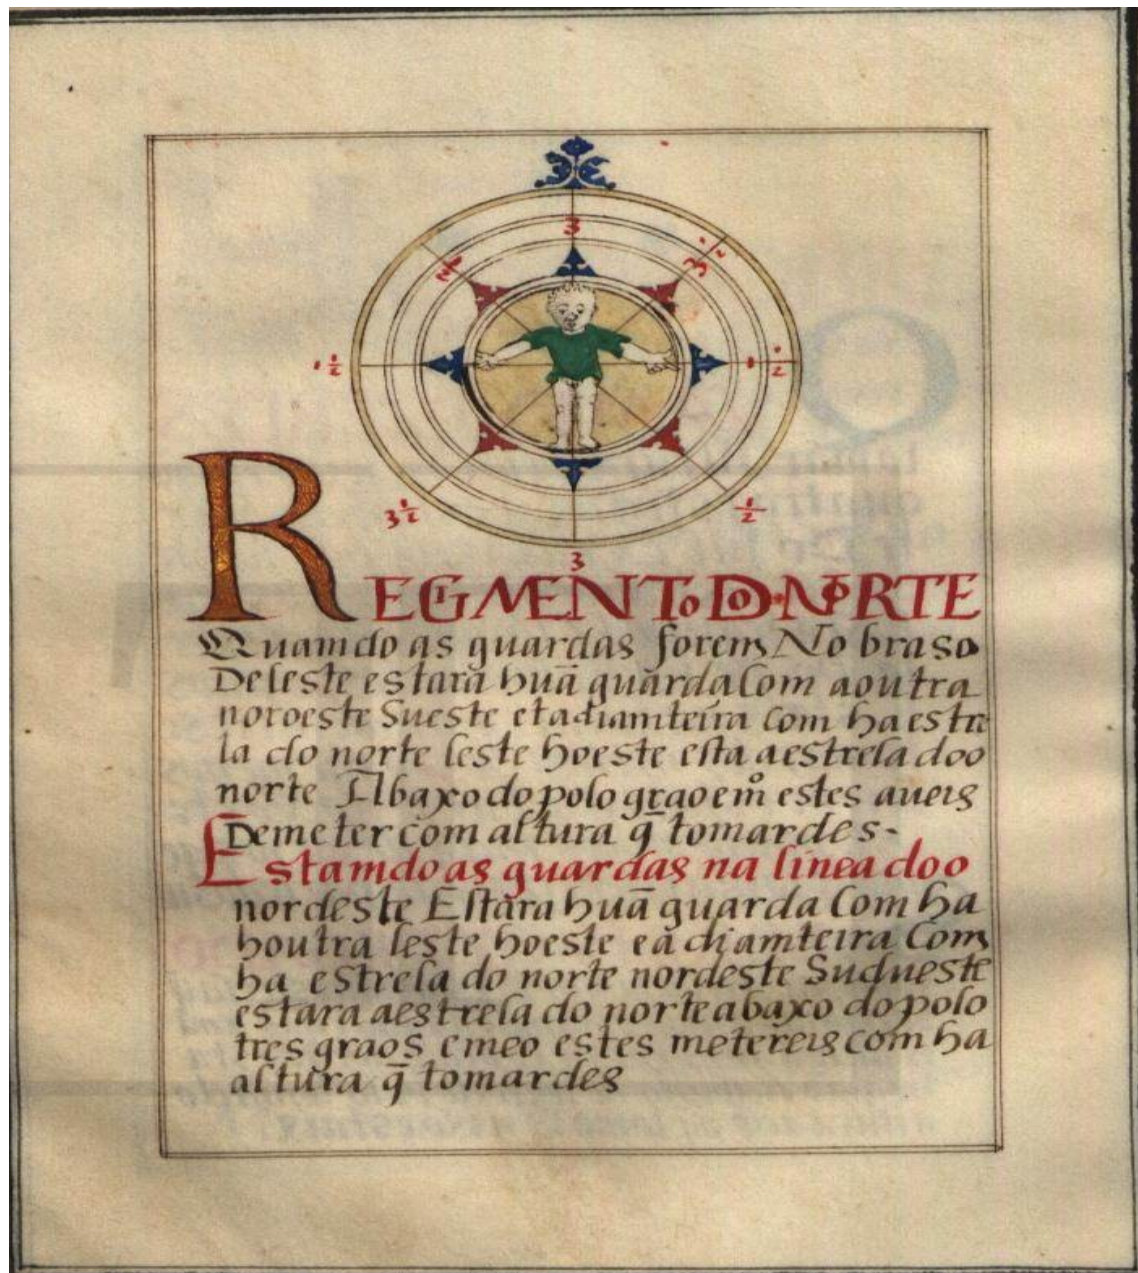 3
3 1/2
2
1 1/2
1 1/2
3 1/2
1/2
3
REGIMENTO DO NORTE
Quamdo as guardas forem No braso
De leste estara huã guarda Com a outra
noroeste Sueste et a diamteira com ha estre
la do norte leste hoeste esta a estrela doo
norte Abaxo do polo grao em⁰ estes aueis
De meter com altura q̃ tomardes-
Estamdo as guardas na linea doo
nordeste Estara huã guarda Com ha
houtra leste hoeste e a diamteira Com
ha estrela do norte nordeste Sudueste
estara a estrela do norte abaxo do polo
tres graos e meo estes metereis com ha
altura q̃ tomardes